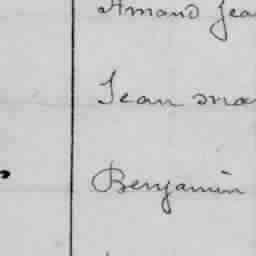 Amand Jea
Jean Ma
Benjamin